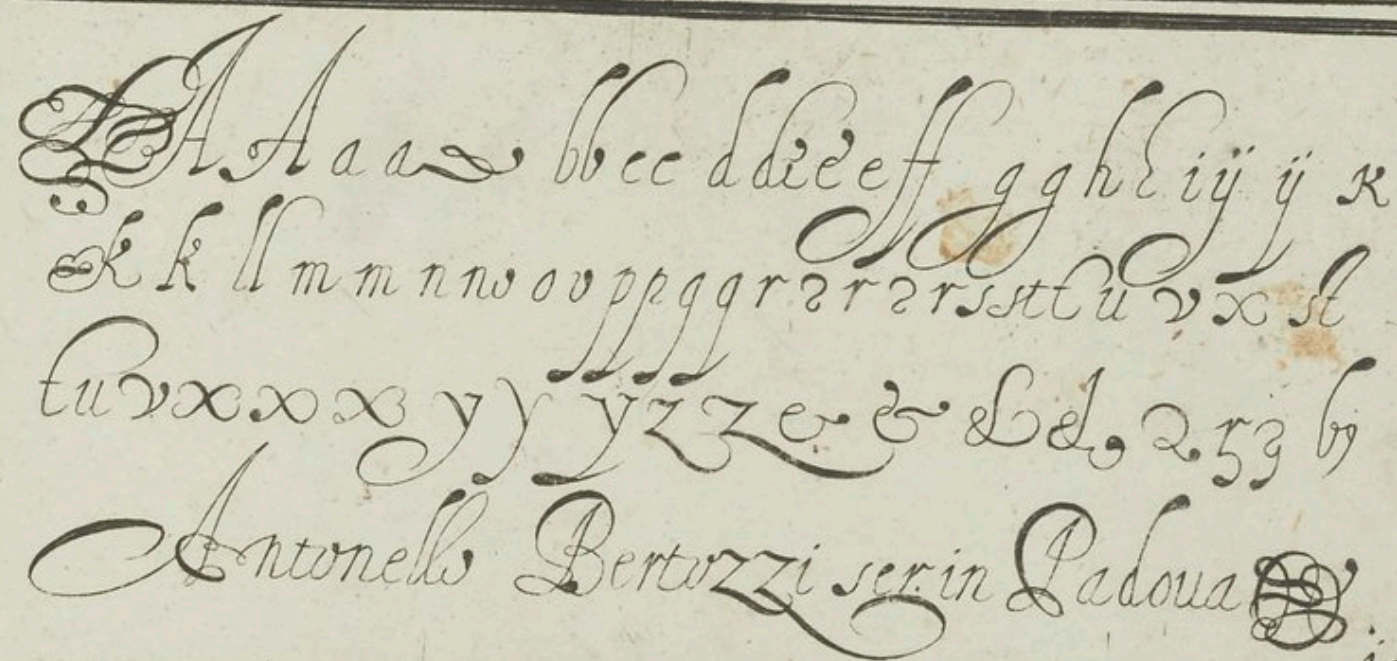 A A a a bb cc d d e e e ff g g h h i ij ij k
k k ll m m n n o o v p p q q r r r r r s s st t t u v x st
t u v x x x y y y z z & & & &
Antonello Bertozzi ser. in Padoua